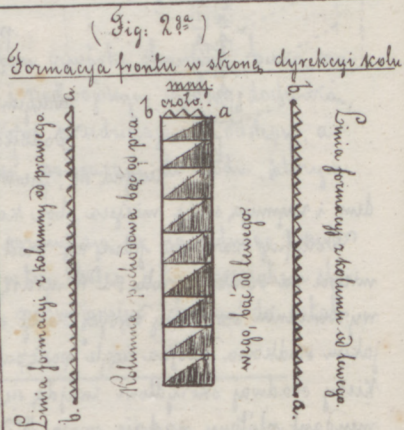 ( Fig: 2ga )
Formacyja frontu w stronę dyrekcyi kolu
mny.
czoło.
b a
Linia formacyi z kolumny od prawego.
a.
b.
Kolumna pochodowa bąć od pra-
wego, bąć od lewego.
b.
a.
Linia formacyi z kolumn od lewego.